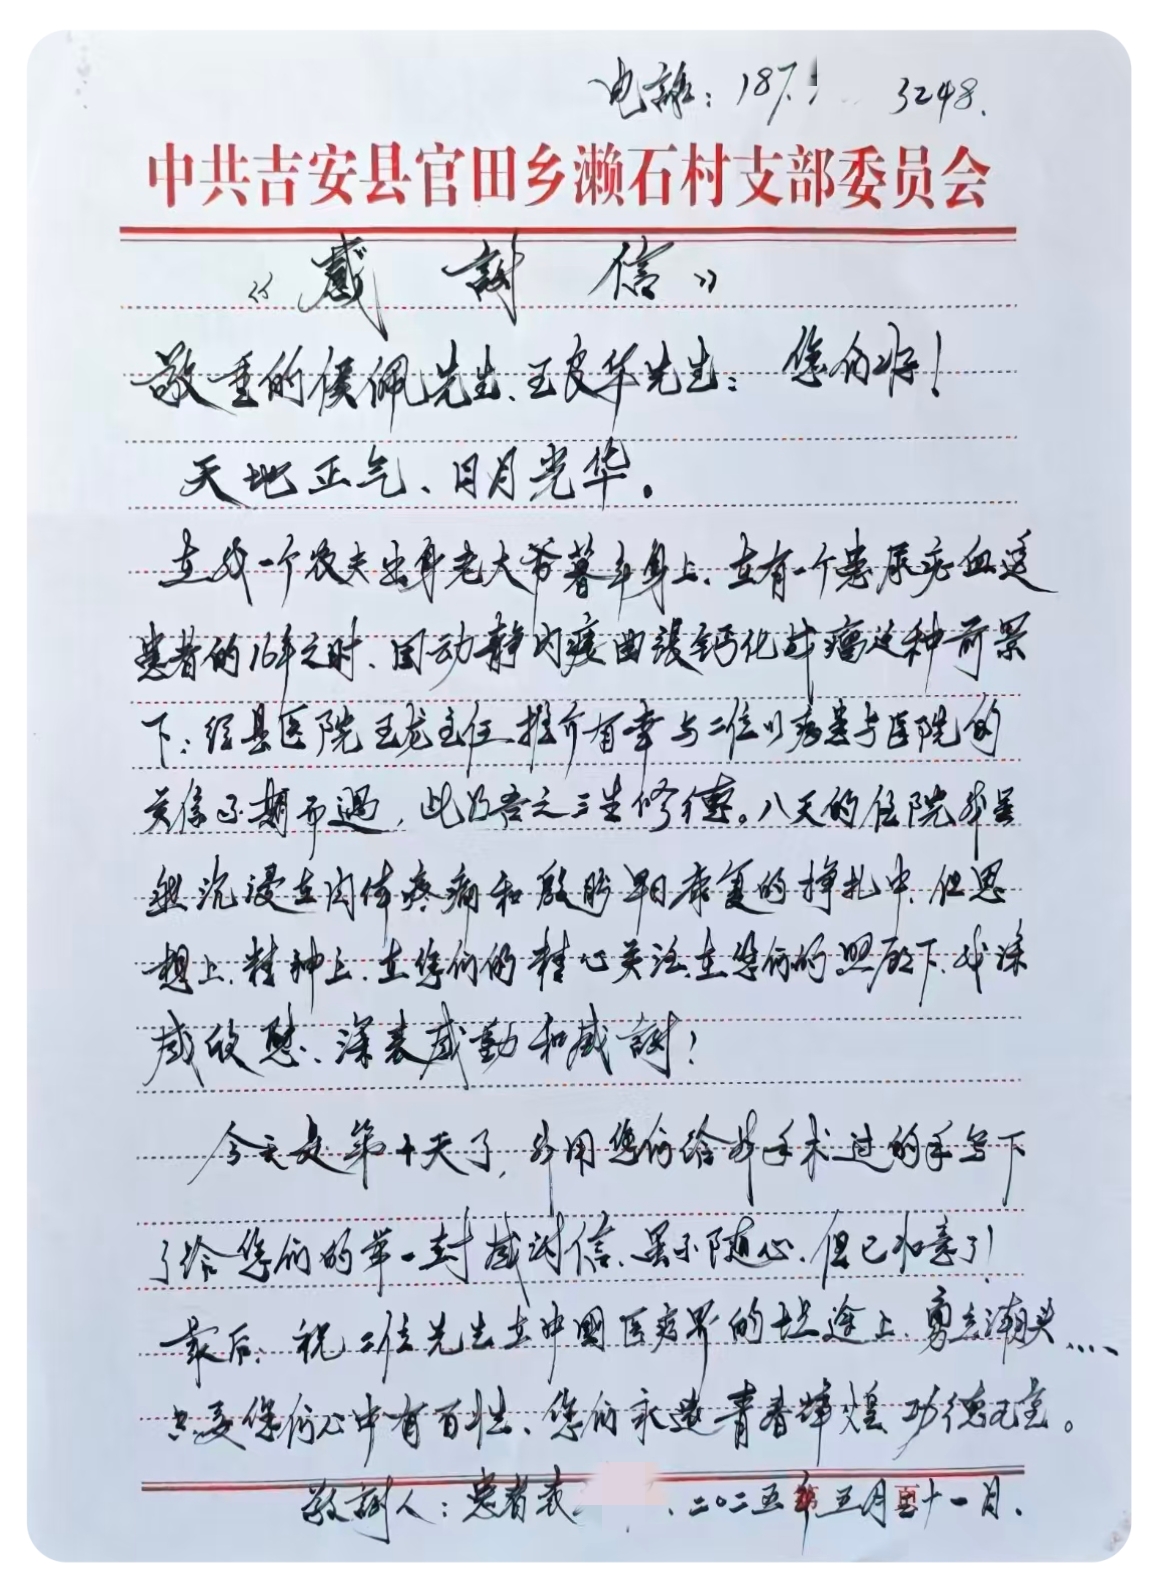 电話：187 3248.
中共吉安县官田乡濑石村支部委员会
《感謝信》
敬重的侯佩先生、王良华先生：您们好！
天地正气、日月光华。
在我一个农夫出身老大爷暮年身上、在有一个患尿症血透
患者的16年之时、因动静内瘘曲张钙化成瘤这种前景
下：经县医院王龙主任推介有幸与二位以病患与医院的
关係不期而遇，此乃吾之三生修德。八天的住院我虽
然沉浸在肉体疼痛和殷盼早日康复的掙扎中、但思
想上、精神上、在您们的精心关注、在您们的照顾下、我深
感欣慰、深表感動和感謝！
今天是第十天了，我用您们给我手术过的手写下
了给您们的第一封感謝信、虽不随心、但已如意了！
最后：祝二位先生在中國医疗界的坦途上、勇立潮头....
只要您们心中有百姓、您们永远青春辉煌功德无量。
敬謝人：患者袁 、二〇二五年五月十一日.